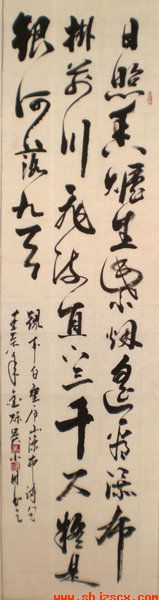 日照香炉生紫烟遥看瀑布
挂前川飞流直下三千尺疑是
银河落九天
録李白望庐山瀑布一诗句
www.shjzscx.com